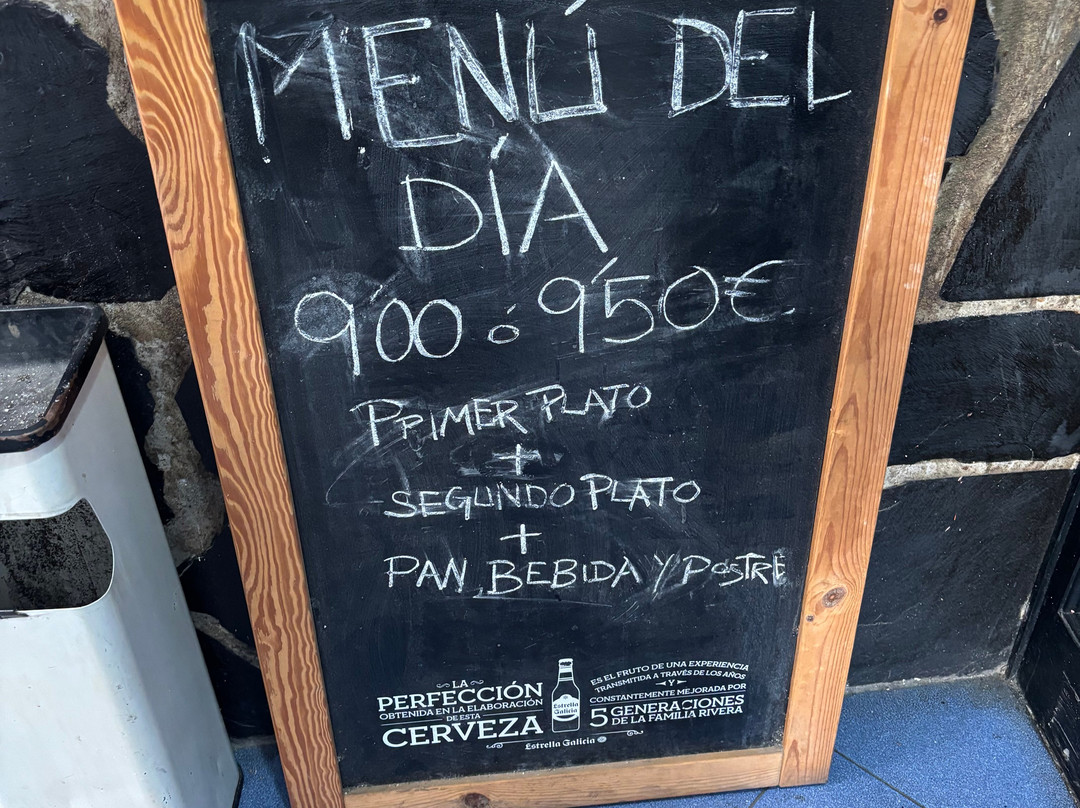 MENÚ DEL
DÍA
9'00 ó 9'50€
PRIMER PLATO
+
SEGUNDO PLATO
+
PAN, BEBIDA Y POSTRE
LA
PERFECCIÓN
OBTENIDA EN LA ELABORACIÓN
DE ESTA
CERVEZA
Estrella
Galicia
ES EL FRUTO DE UNA EXPERIENCIA
TRANSMITIDA A TRAVÉS DE LOS AÑOS
Y
CONSTANTEMENTE MEJORADA POR
5 GENERACIONES
DE LA FAMILIA RIVERA
Estrella Galicia